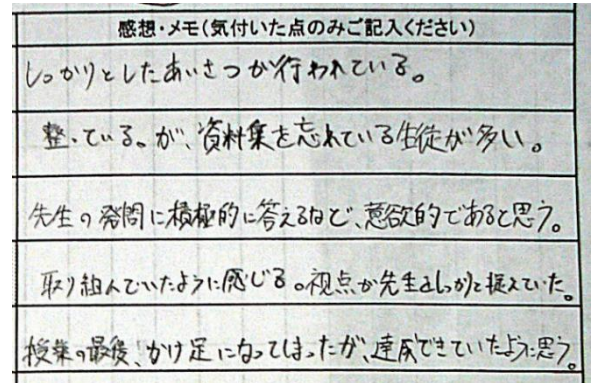 感想・メモ(気付いた点のみご記入ください)
しっかりとしたあいさつが行われている。
整っている。が、資料集を忘れている生徒が多い。
先生の発問に積極的に答えるなど、意欲的であると思う。
取り組んでいたように感じる。視点が先生をしっかりと捉えていた。
授業の最後、かけ足になってしまったが、達成できていたように思う。